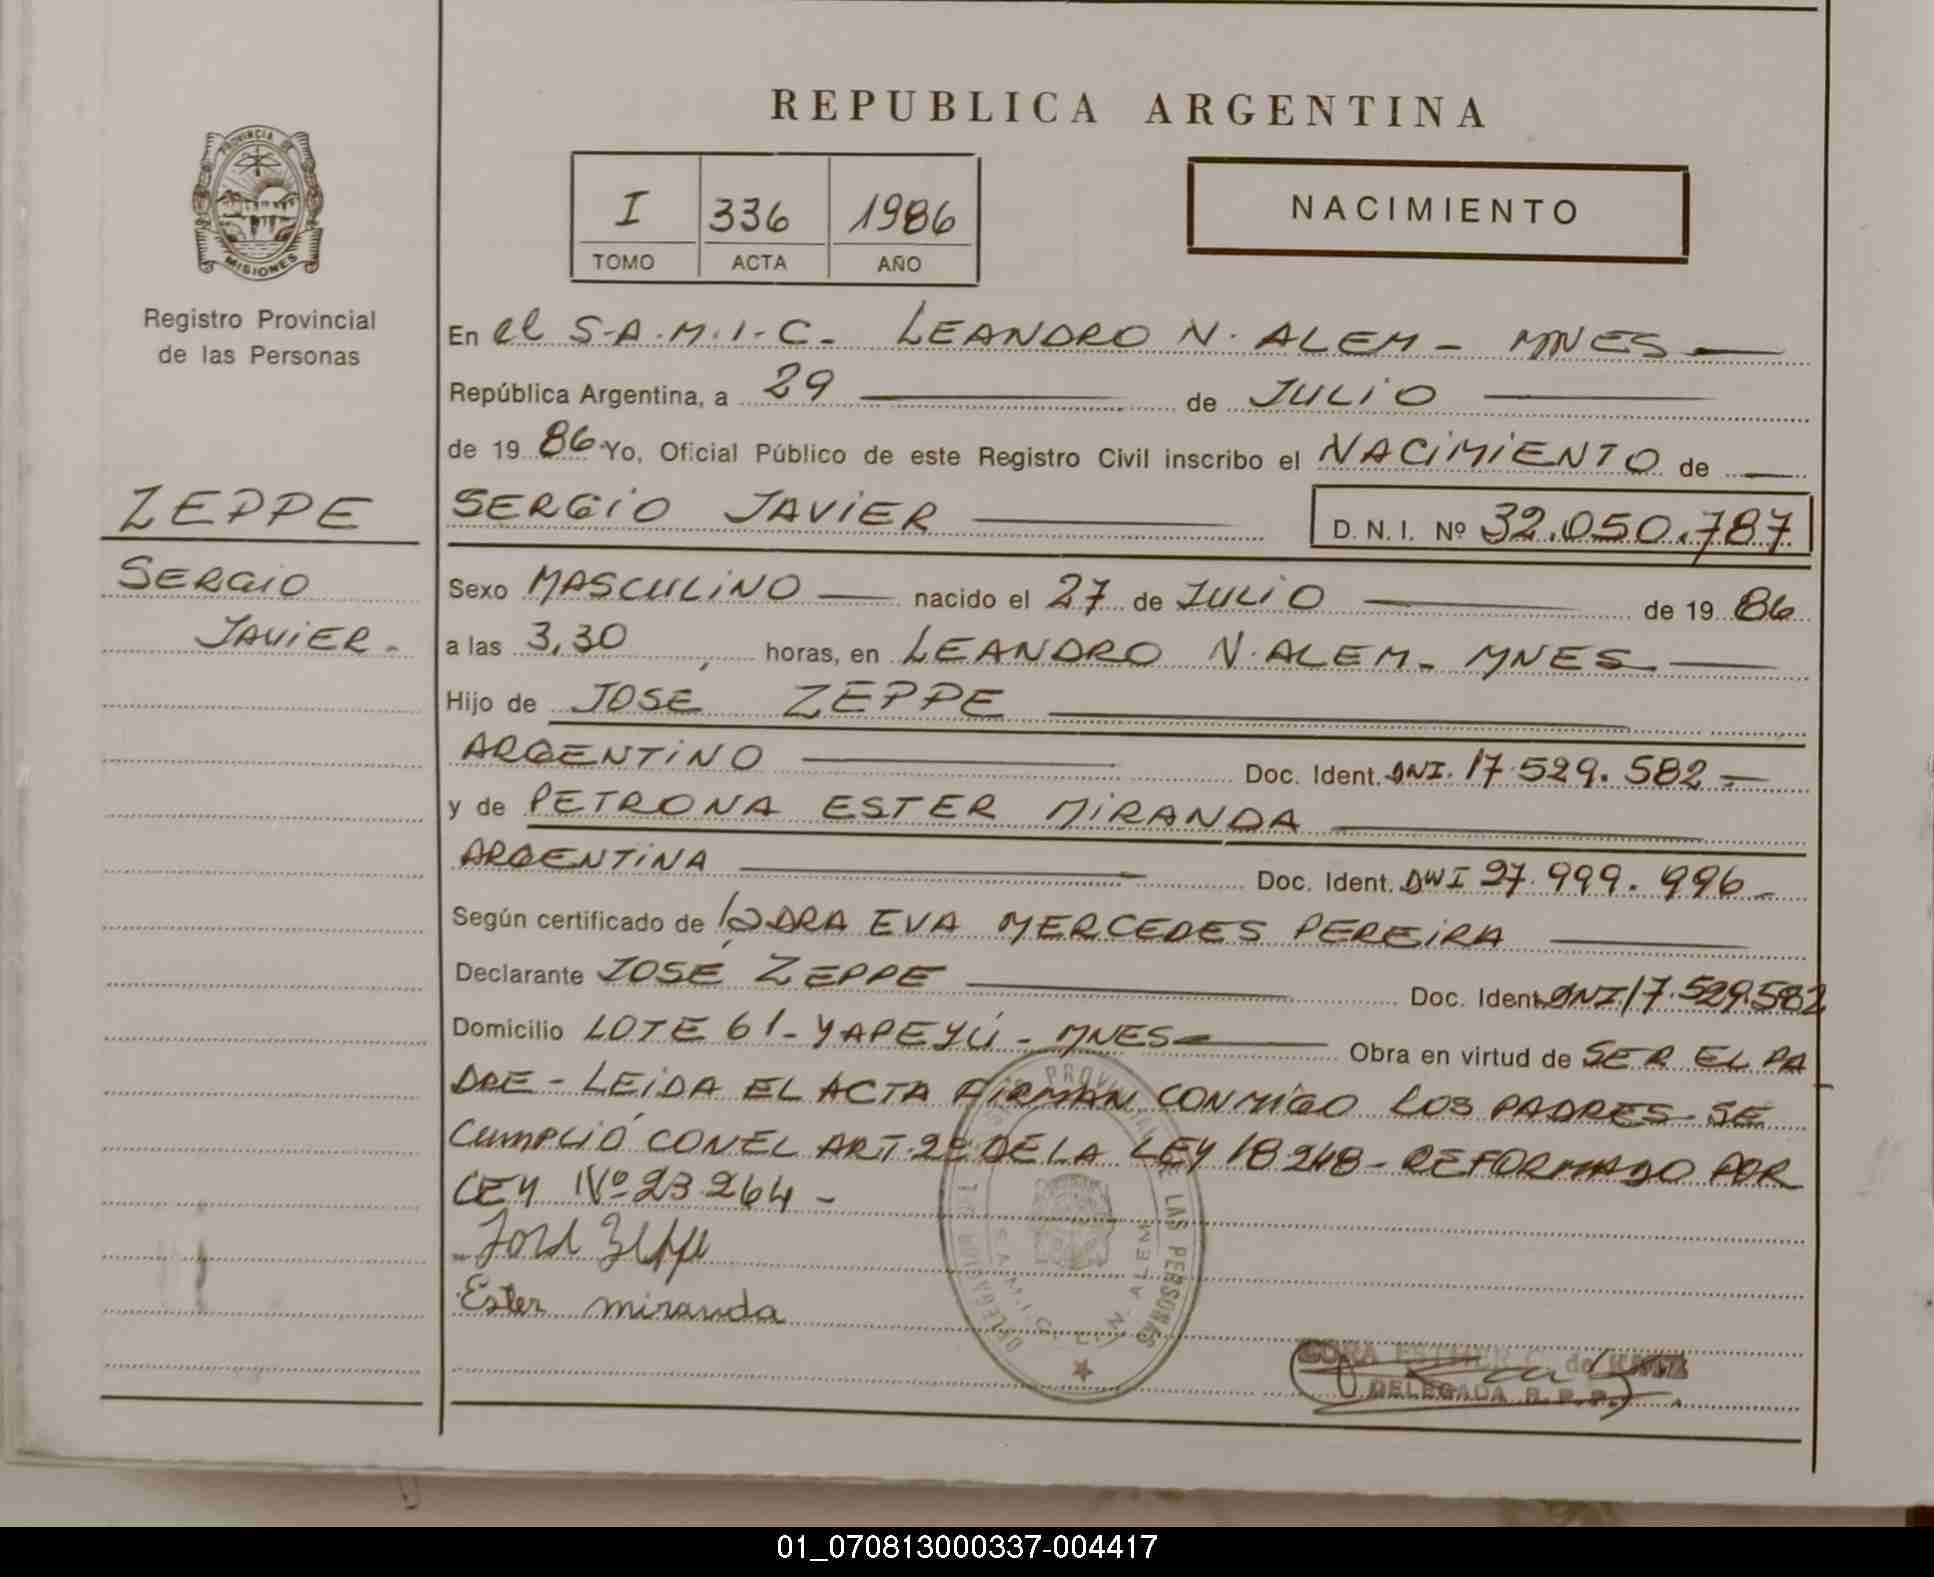 REPUBLICA ARGENTINA
PROVINCIA DE
MISIONES
Registro Provincial
de las Personas
I 336 1986
TOMO ACTA AÑO
NACIMIENTO
En el S.A.M.I.C. LEANDRO N. ALEM - MNES
República Argentina, a 29 de JULIO
de 19 86 Yo, Oficial Público de este Registro Civil inscribo el NACIMIENTO de
ZEPPE
SERGIO JAVIER D.N.I. Nº 32.050.787
SERGIO
JAVIER.
Sexo MASCULINO nacido el 27 de JULIO de 19 86
a las 3,30 horas, en LEANDRO N. ALEM - MNES
Hijo de JOSÉ ZEPPE
ARGENTINO Doc. Ident. DNI. 17.529.582
y de PETRONA ESTER MIRANDA
ARGENTINA Doc. Ident. DNI 27.999.996
Según certificado de DRA EVA MERCEDES PEREIRA
Declarante JOSÉ ZEPPE Doc. Ident. DNI. 17.529.582
Domicilio LOTE 61 - YAPEYÚ - MNES Obra en virtud de SER EL PA
DRE - LEIDA EL ACTA FIRMAN CONMIGO LOS PADRES SE
CUMPLIÓ CON EL ART. 2º DE LA LEY 18248 - REFORMADO POR
LEY Nº 23.264 -
José Zeppe
Ester miranda
PROVINCIAL DE LAS PERSONAS
DELEGACION
S.A.M.I.C. L. N. ALEM
de
DELEGADA R.P.P.
01_070813000337-004417